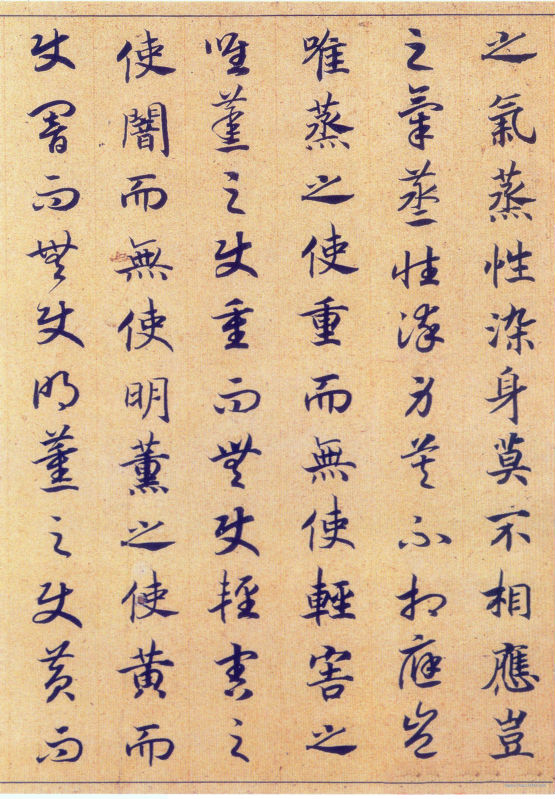 之氣蒸性染身莫不相應豈
之氣蒸性染身莫不相應豈
唯蒸之使重而無使輕害之
唯蒸之使重而無使輕害之
使闇而無使明薰之使黄而
使闇而無使明薰之使黄而